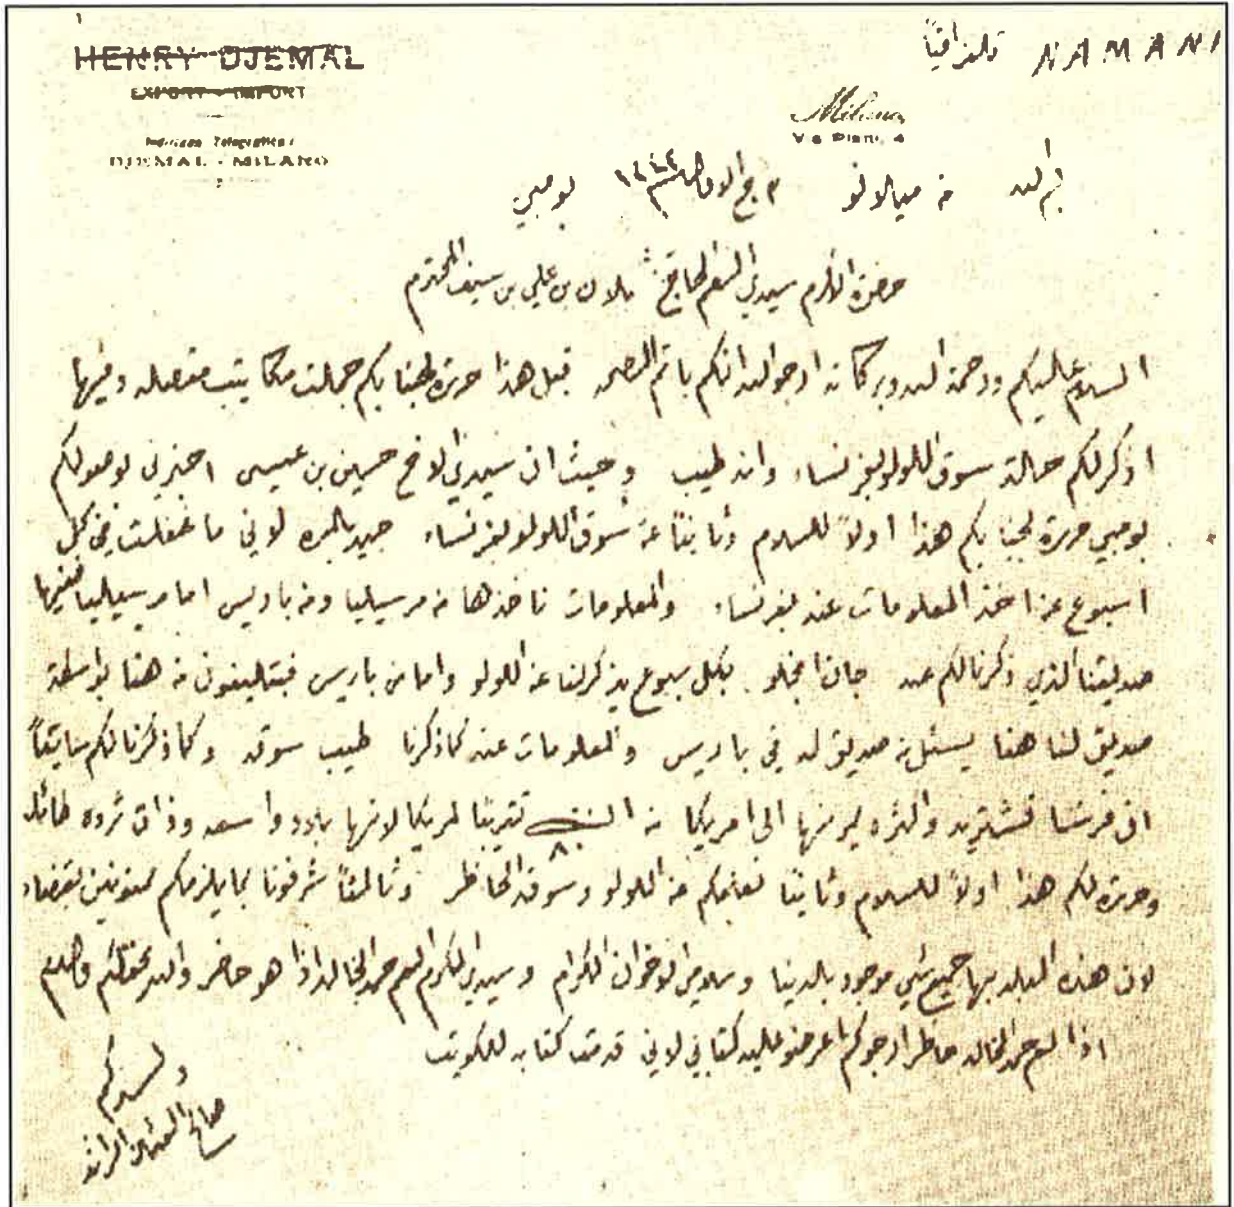 HENRY DJEMAL
EXPORT - IMPORT
Indirizzo Telegrafico:
DJEMAL - MILANO
تلغرافياً NAMANI
Milano
Via Piatti, 4
من ميلانو ٣ ج الاول سنة ١٣٤٤ بومبي
حضرة الاكرم سيدي العم الحاج شملان بن علي بن سيف المحترم
السلام عليكم ورحمة الله وبركاته ارجو الله انكم باتم الصحه قبل هذا حررة لجنابكم جملت مكاتيب مفصله وفيها
اذكر لكم حالة سوق اللولو بفرنساء وانه طيب وحيث ان سيدي الاخ حسين بن عيسى اخبرني بوصولكم
بومبي حررة لجنابكم هذا اولاً للسلام وثانياً عن سوق اللولو بفرنساء جيد بالمره لاني ما غفلت في كل
اسبوع عن اخذ المعلومات عنه بفرنساء والمعلومات ناخذها من مرسيليا ومن باريس اما مرسيليا ففيها
صديقنا الذي ذكرنا لكم عنه جان بكل سبوع يذكر لنا عن اللولو واما من باريس فبتليفون من هنا بواسطة
صديق لنا هنا يسئل من صديق له في باريس والمعلومات عنه كما ذكرنا طيب سوقه وكما ذكرنا لكم سابقاً
ان فرنسا تشتريه واكثره يرسلونها الى امريكا من ٨٠ تقريبًا لمريكا لانها بلاد واسعه وذات ثروه طائله
وحررة لكم هذا اولاً للسلام وثانيًا نعلمكم عن اللولو وسوقه الحاظر وثالثاً شرفونا بما يلزمكم ممنونين بقضاه
لان هذه البلد بها جميع شي موجود بالدنيا وسلامي للاخوان الكرام وسيدي المكرم العم حمد الخالد اذا هو حاضر والله يحفظكم
اذا العم حمد الخالد حاظر ارجوكم اعرضو عليه كتابي لاني قدمت كتابه للكويت
ولدكم
صالح العثمان الراشد